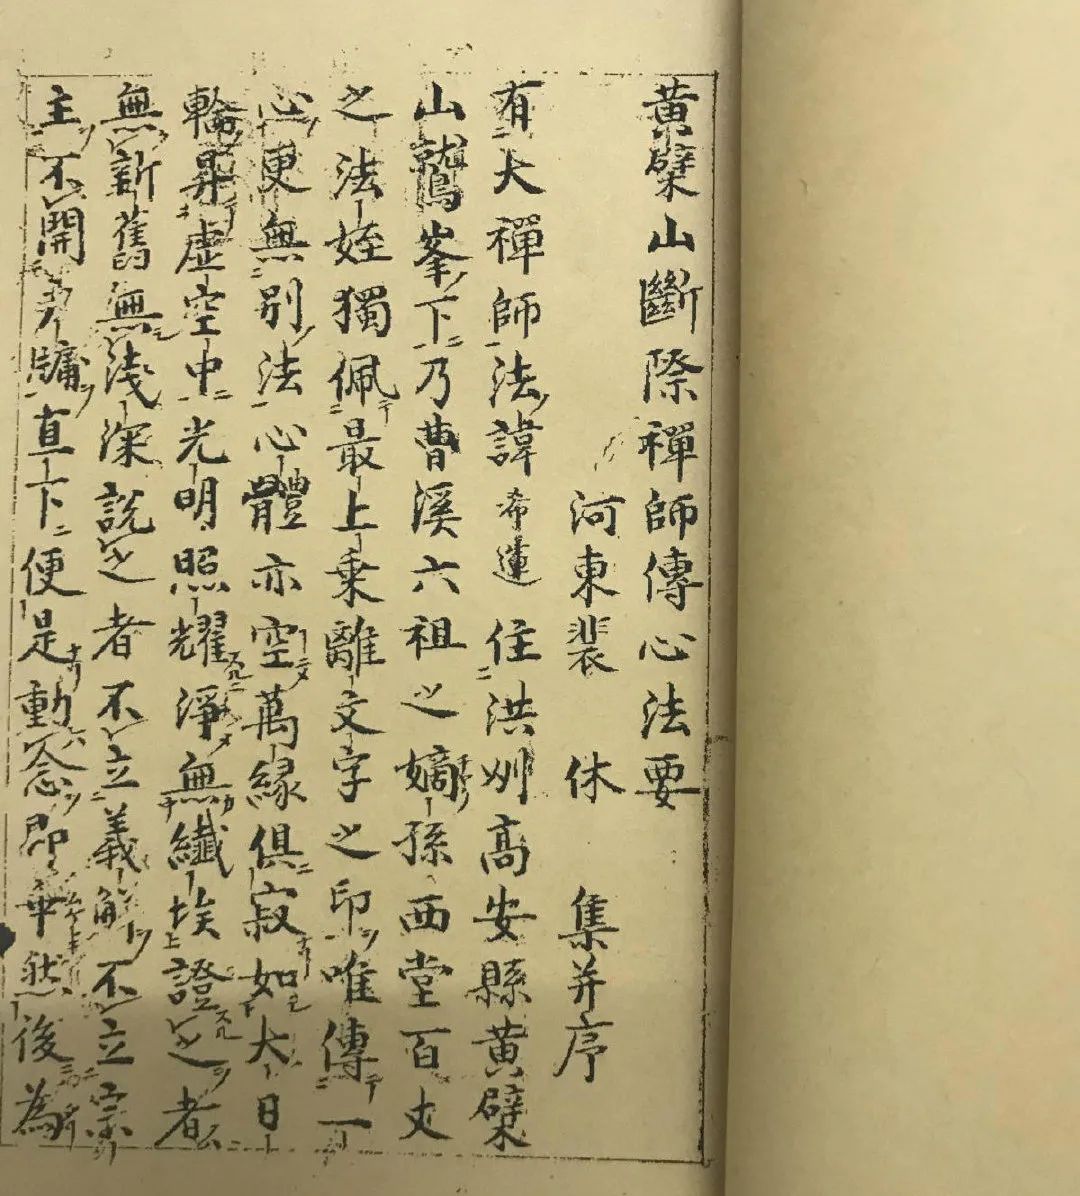 黃檗山斷際禪師傳心法要
河東裴休集并序
有大禪師法諱希運住洪州高安縣黃檗
山鷲峯下乃曹溪六祖之嫡孫西堂百丈
之法姪獨佩最上乗離文字之印唯傳一
心更無別法心體亦空萬緣俱寂如大日
輪昇虛空中光明照耀淨無纖埃證之者
無新舊無淺深說之者不立義解不立宗
主不開戶牖直下便是動念即乖然後為